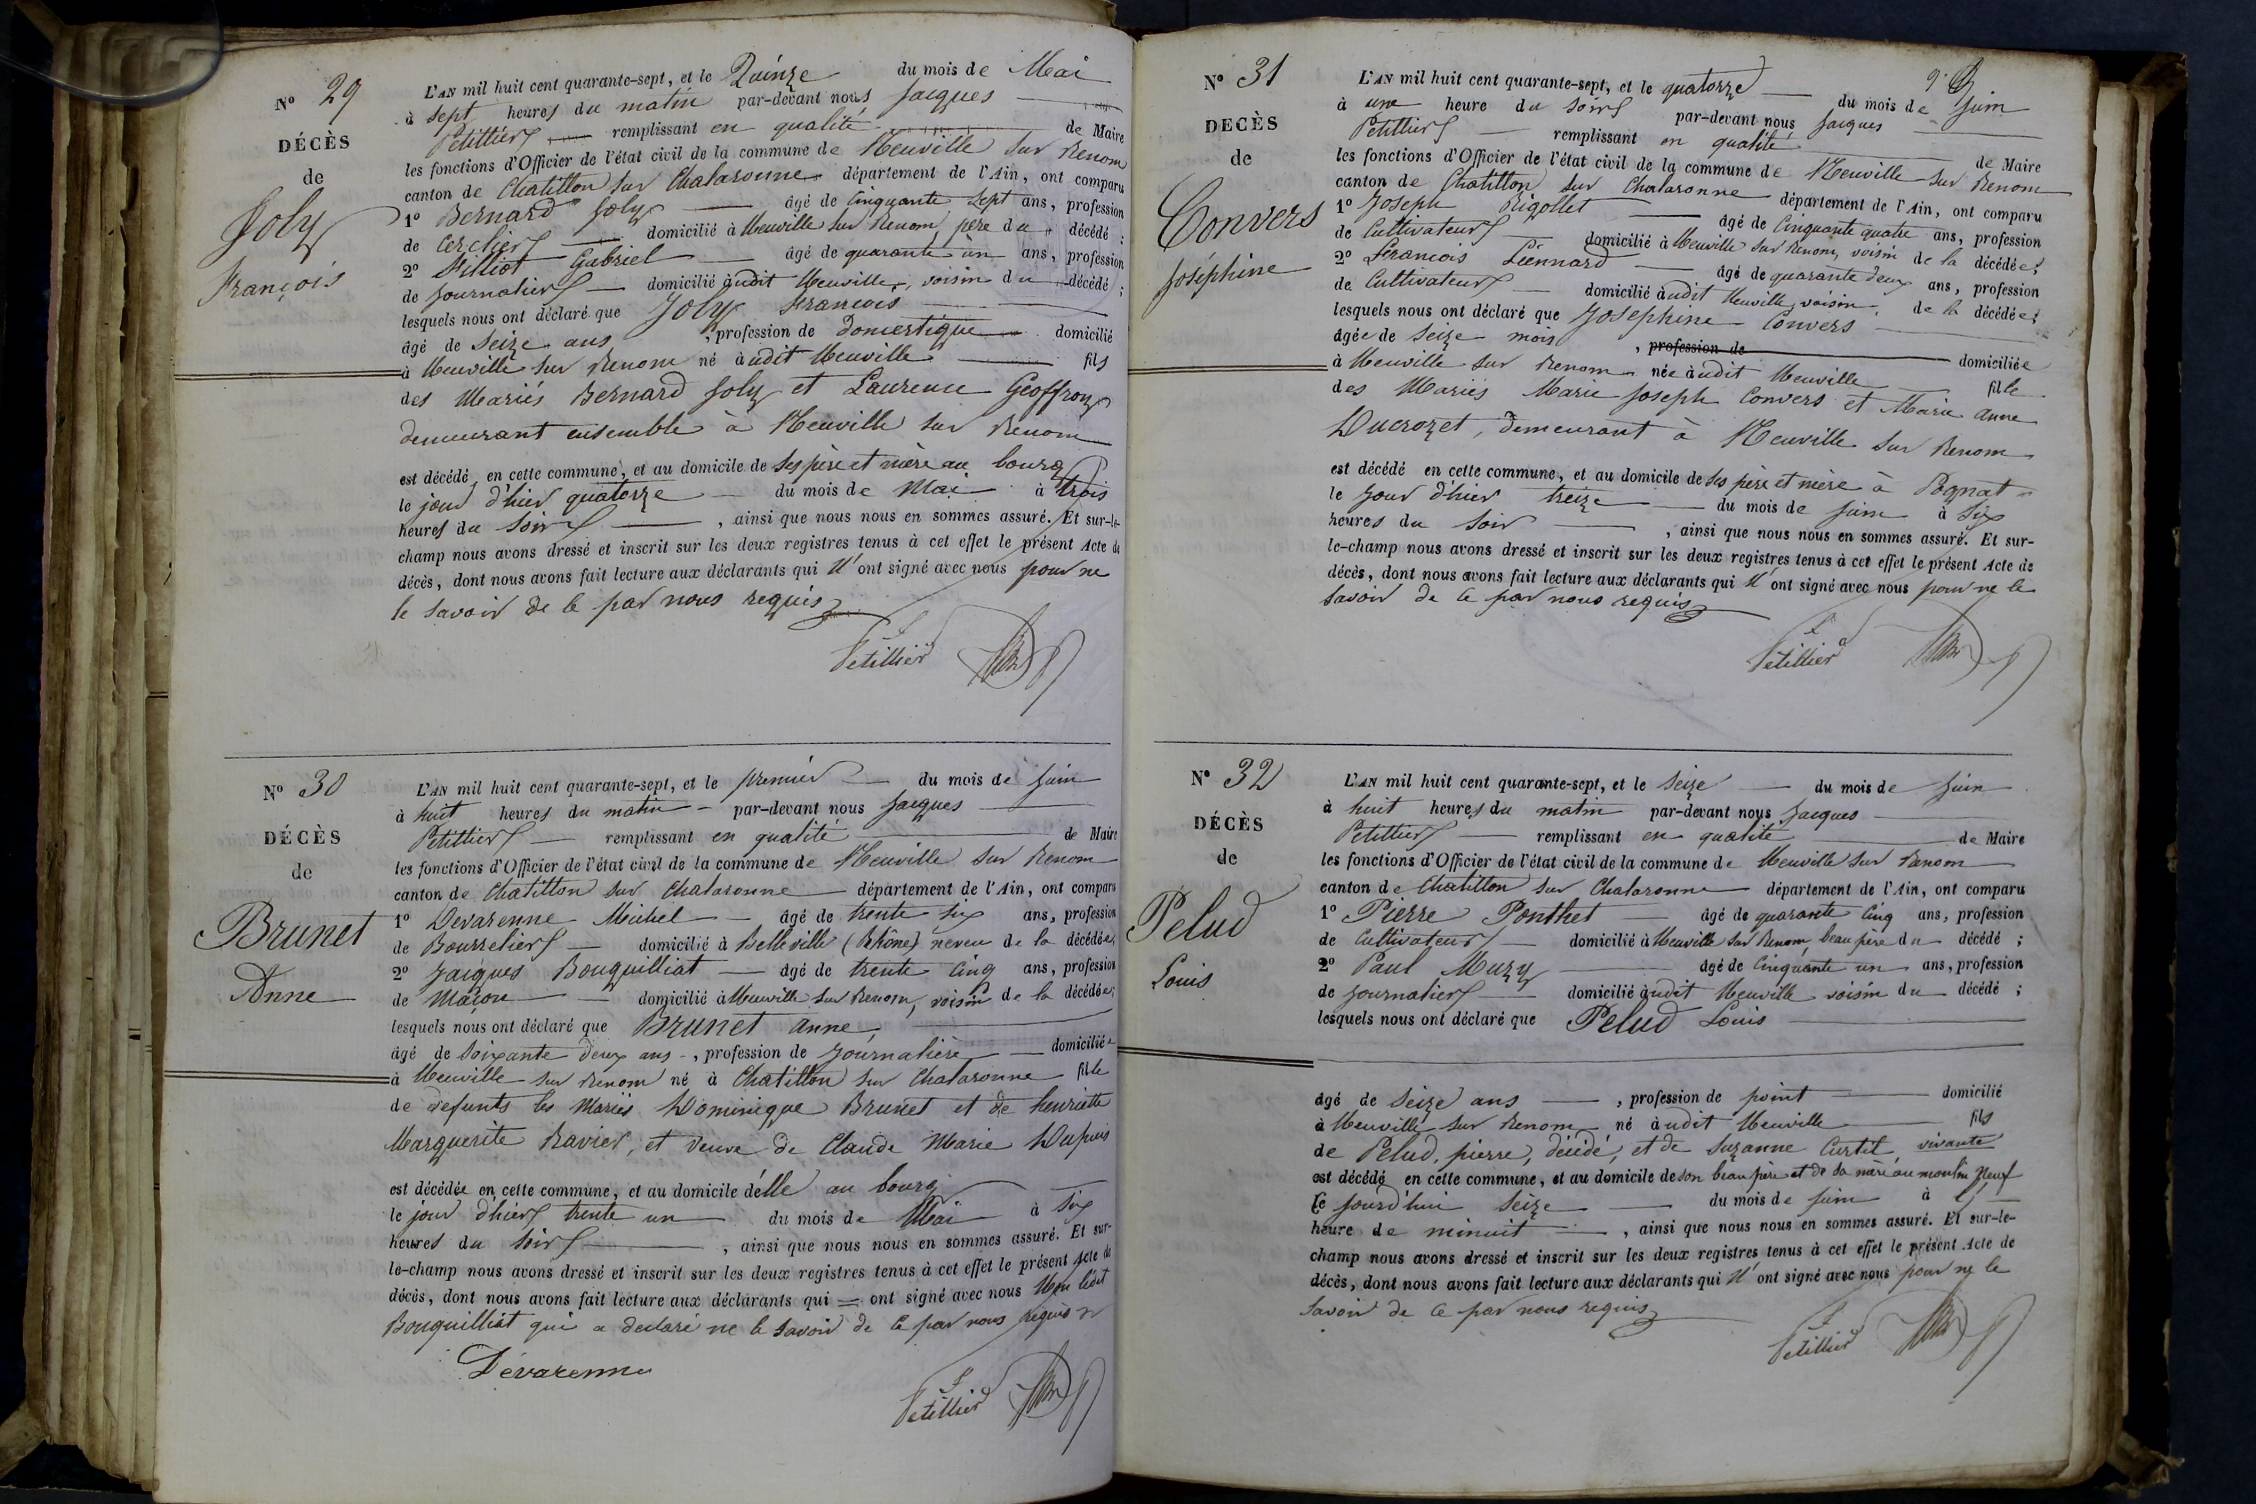 Nº 29
DÉCÈS
de
Joly
François
L'AN mil huit cent quarante-sept, et le Quinze du mois de Mai
à sept heures du matin par-devant nous Jacques
Petillier remplissant en qualité de Maire
les fonctions d'Officier de l'état civil de la commune de Neuville sur Renom
canton de Chatillon sur Chalaronne département de l'Ain, ont comparu
1º Bernard Joly âgé de Cinquante Sept ans, profession
de cerclier domicilié à Neuville sur Renom, père du décédé ;
2º Gabriel âgé de quarante un ans, profession
de journalier domicilié àudit Neuville, voisin du décédé ;
lesquels nous ont déclaré que Joly François
âgé de seize ans , profession de domestique domicilié
à Neuville sur Renom né àudit Neuville fils
des Mariés Bernard Joly et Laurence Geoffroy
demeurant ensemble à Neuville sur Renom
est décédé en cette commune, et au domicile de ses père et mère au bourg
le jour d'hier quatorze du mois de Mai à trois
heures du soir , ainsi que nous nous en sommes assuré. Et sur-le-
champ nous avons dressé et inscrit sur les deux registres tenus à cet effet le présent Acte de
décès, dont nous avons fait lecture aux déclarants qui n'ont signé avec nous pour ne
le savoir de ce par nous requis
Petillier
Nº 30
DÉCÈS
de
Brunet
Anne
L'AN mil huit cent quarante-sept, et le premier du mois de Juin
à huit heures du matin par-devant nous Jacques
Petillier remplissant en qualité de Maire
les fonctions d'Officier de l'état civil de la commune de Neuville sur Renom
canton de Chatillon sur Chalaronne département de l'Ain, ont comparu
1º Devarenne Michel âgé de trente six ans, profession
de Bourrelier domicilié à Belleville (Rhône) neveu de la décédée;
2º Jacques Bouquilliat âgé de trente cinq ans, profession
de Maçon domicilié à Neuville sur Renom, voisin de la décédée;
lesquels nous ont déclaré que Brunet Anne
âgé de soixante deux ans , profession de journalière domiciliée
à Neuville sur Renom né à Chatillon sur Chalaronne fille
de défunts les Mariés Dominique Brunet et de henriette
Marguerite Ravier, et Veuve de Claude Marie Dupuis
est décédée en cette commune, et au domicile d'elle au bourg
le jour d'hier trente un du mois de Mai à six
heures du soir , ainsi que nous nous en sommes assuré. Et sur-
le-champ nous avons dressé et inscrit sur les deux registres tenus à cet effet le présent Acte de
décès, dont nous avons fait lecture aux déclarants qui = ont signé avec nous Non ledit
Bouquilliat qui a déclaré ne le savoir de ce par nous requis
Devarenne
Petillier
Nº 31
DÉCÈS
de
Convers
Joséphine
L'AN mil huit cent quarante-sept, et le quatorze du mois de Juin
à une heure du soir par-devant nous Jacques
Petillier remplissant en qualité de Maire
les fonctions d'Officier de l'état civil de la commune de Neuville sur Renom
canton de Chatillon sur Chalaronne département de l'Ain, ont comparu
1º Joseph Rigollet âgé de Cinquante quatre ans, profession
de Cultivateur domicilié à Neuville sur Renom, voisin de la décédée;
2º Francois Liennard âgé de quarante deux ans, profession
de Cultivateur domicilié àudit Neuville, voisin de la décédée;
lesquels nous ont déclaré que Josephine Convers
âgée de seize mois , profession de domiciliée
à Neuville sur Renom née àudit Neuville fille
des Mariés Marie Joseph Convers et Marie Anne
Ducrozet, demeurant à Neuville sur Renom
est décédé en cette commune, et au domicile de ses père et mère à Pognat
le jour d'hier treize du mois de juin à six
heures du soir , ainsi que nous nous en sommes assuré. Et sur-
le-champ nous avons dressé et inscrit sur les deux registres tenus à cet effet le présent Acte de
décès, dont nous avons fait lecture aux déclarants qui n'ont signé avec nous pour ne le
savoir de ce par nous requis
Petillier
Nº 32
DÉCÈS
de
Pelud
Louis
L'AN mil huit cent quarante-sept, et le seize du mois de juin
à huit heures du matin par-devant nous Jacques
Petillier remplissant en qualité de Maire
les fonctions d'Officier de l'état civil de la commune de Neuville sur Renom
canton de Chatillon sur Chalaronne département de l'Ain, ont comparu
1º Pierre Ponthet âgé de quarante cinq ans, profession
de Cultivateur domicilié à Neuville sur Renom, beau père du décédé ;
2º Paul Muzy âgé de Cinquante un ans, profession
de journalier domicilié àudit Neuville voisin du décédé ;
lesquels nous ont déclaré que Pelud Louis
âgé de seize ans , profession de point domicilié
à Neuville sur Renom né àudit Neuville fils
de Pelud, pierre, décédé, et de Suzanne Curtil, vivante
est décédé en cette commune, et au domicile de son beau père et de sa mère au moulin Neuf
le jourd'hui seize du mois de juin à l'
heure de minuit , ainsi que nous nous en sommes assuré. Et sur-le-
champ nous avons dressé et inscrit sur les deux registres tenus à cet effet le présent Acte de
décès, dont nous avons fait lecture aux déclarants qui n'ont signé avec nous pour ne le
savoir de ce par nous requis
Petillier